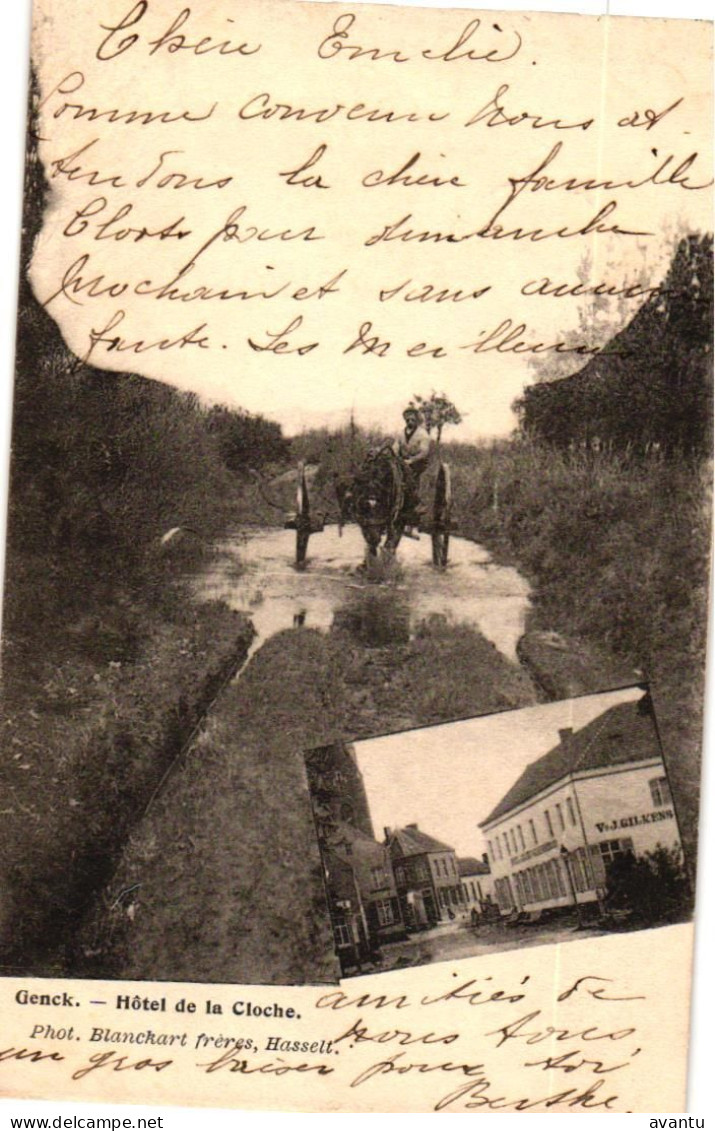 Chère Emelie.
Comme convenu nous at
tendons la chère famille
Clorts pour dimanche
prochain et sans aucune
faute. Les meilleures
Vve J. GILKENS
Genck. — Hôtel de la Cloche.
Phot. Blanckart frères, Hasselt.
amitiés de
nous tous
un gros baiser pour toi
Berthe
avantu